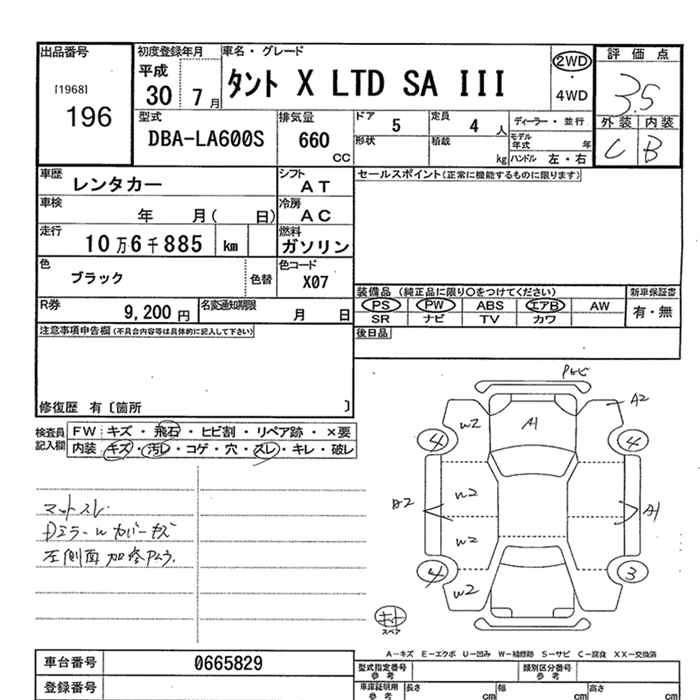 出品番号 初度登録年月 車名・グレード 評価点
[1968] 平成 タント X LTD SA III 2WD
・ 3.5
196 30 7月 4WD
外装 内装
型式 排気量 ドア 5 定員 4人 ディーラー・並行 C B
DBA-LA600S 660 CC 形状 積載 kg モデル年式 年
ハンドル 左・右
車歴 レンタカー シフト AT セールスポイント(正常に機能するものに限ります)
車検 年 月( 日) 冷房 AC
走行 10万6千885 km 燃料 ガソリン
色 ブラック 色替 色コード X07
装備品(純正品に限り○をつけてください) 新車保証書
PS PW ABS エアB AW 有・無
SR ナビ TV カワ
R券 9,200円 名変通知期限 月 日
後日品
注意事項申告欄(不具合内容等は具体的に記入して下さい)
修復歴 有〔箇所 〕
検査員記入欄 FW キズ・飛石・ヒビ割・リペア跡・×要
内装 キズ・汚レ・コゲ・穴・スレ・キレ・破レ
マットスレ
Dミラーwカバーキズ
A2
W2 A1
4 4
A2 W2 A1
W2
4 3
W2
スペア
A－キズ E－エクボ U－凹み W－補修跡 S－サビ C－腐食 XX－交換済
車台番号 0665829 型式指定番号 参考 類別区分番号 参考
登録番号 車庫証明用 参考 長さ cm 幅 cm 高さ cm